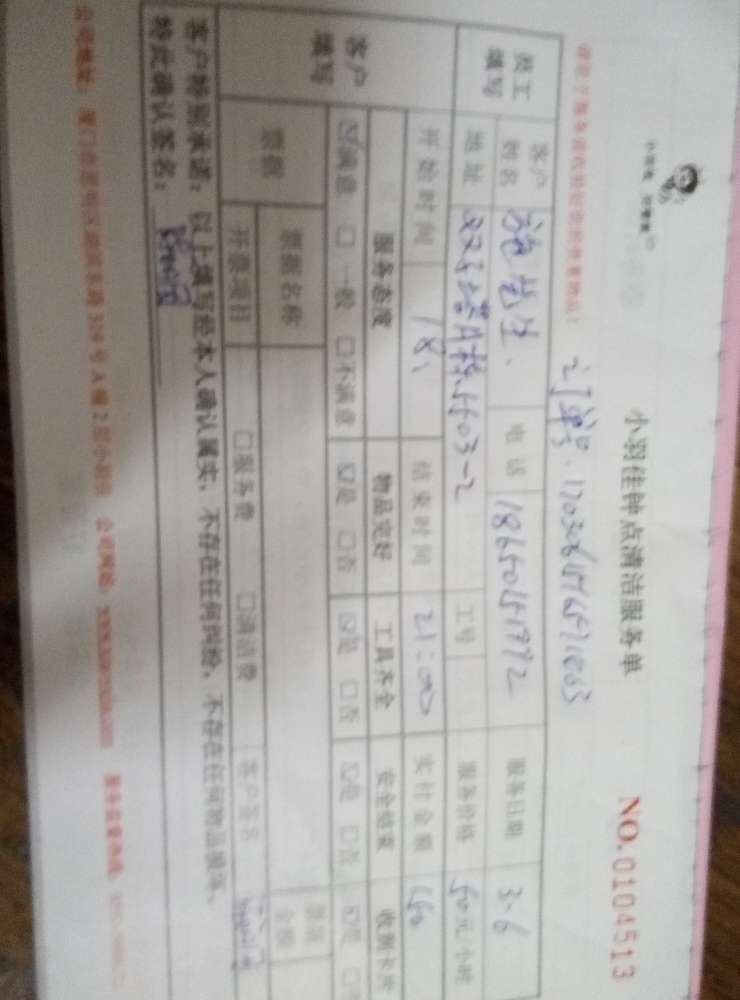 小羽佳钟点清洁服务单
NO.0104513
订单号.
员工填写 客户姓名 施先生. 电话 18650151772 服务日期 3.6
地址 双子塔A栋5603-2 工号 服务价格 50元/小时
客户填写 开始时间 18: 结束时间 21:00 实付金额 150
服务态度 物品完好 工具齐全 安全结束 收到卡片
☑满意 □一般 □不满意 ☑是 □否 ☑是 □否 ☑是 □否 ☑是 □否
票据 票据名称 票据金额
开票项目 □服务费 □清洁费 客户签名
客户特别承诺：以上填写经本人确认属实，不存在任何纠纷，不存在任何物品损坏，
特此确认签名：
公司地址：